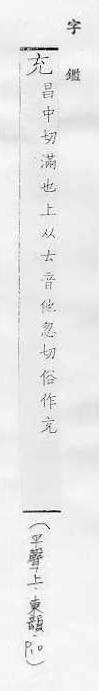 字鑑
充昌中切滿也上从𠫓音他忽切俗作充
(平聲上、東韻、P10)